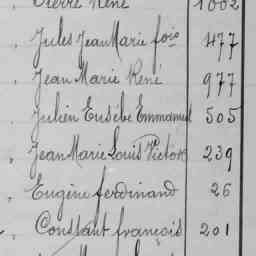 Pierre René 1002
Jules Jean Marie fois 477
Jean Marie René 977
Julien Eusèbe Emmanuel 505
Jean Marie Louis Victor 239
Eugène ferdinand 26
Constant françois 201